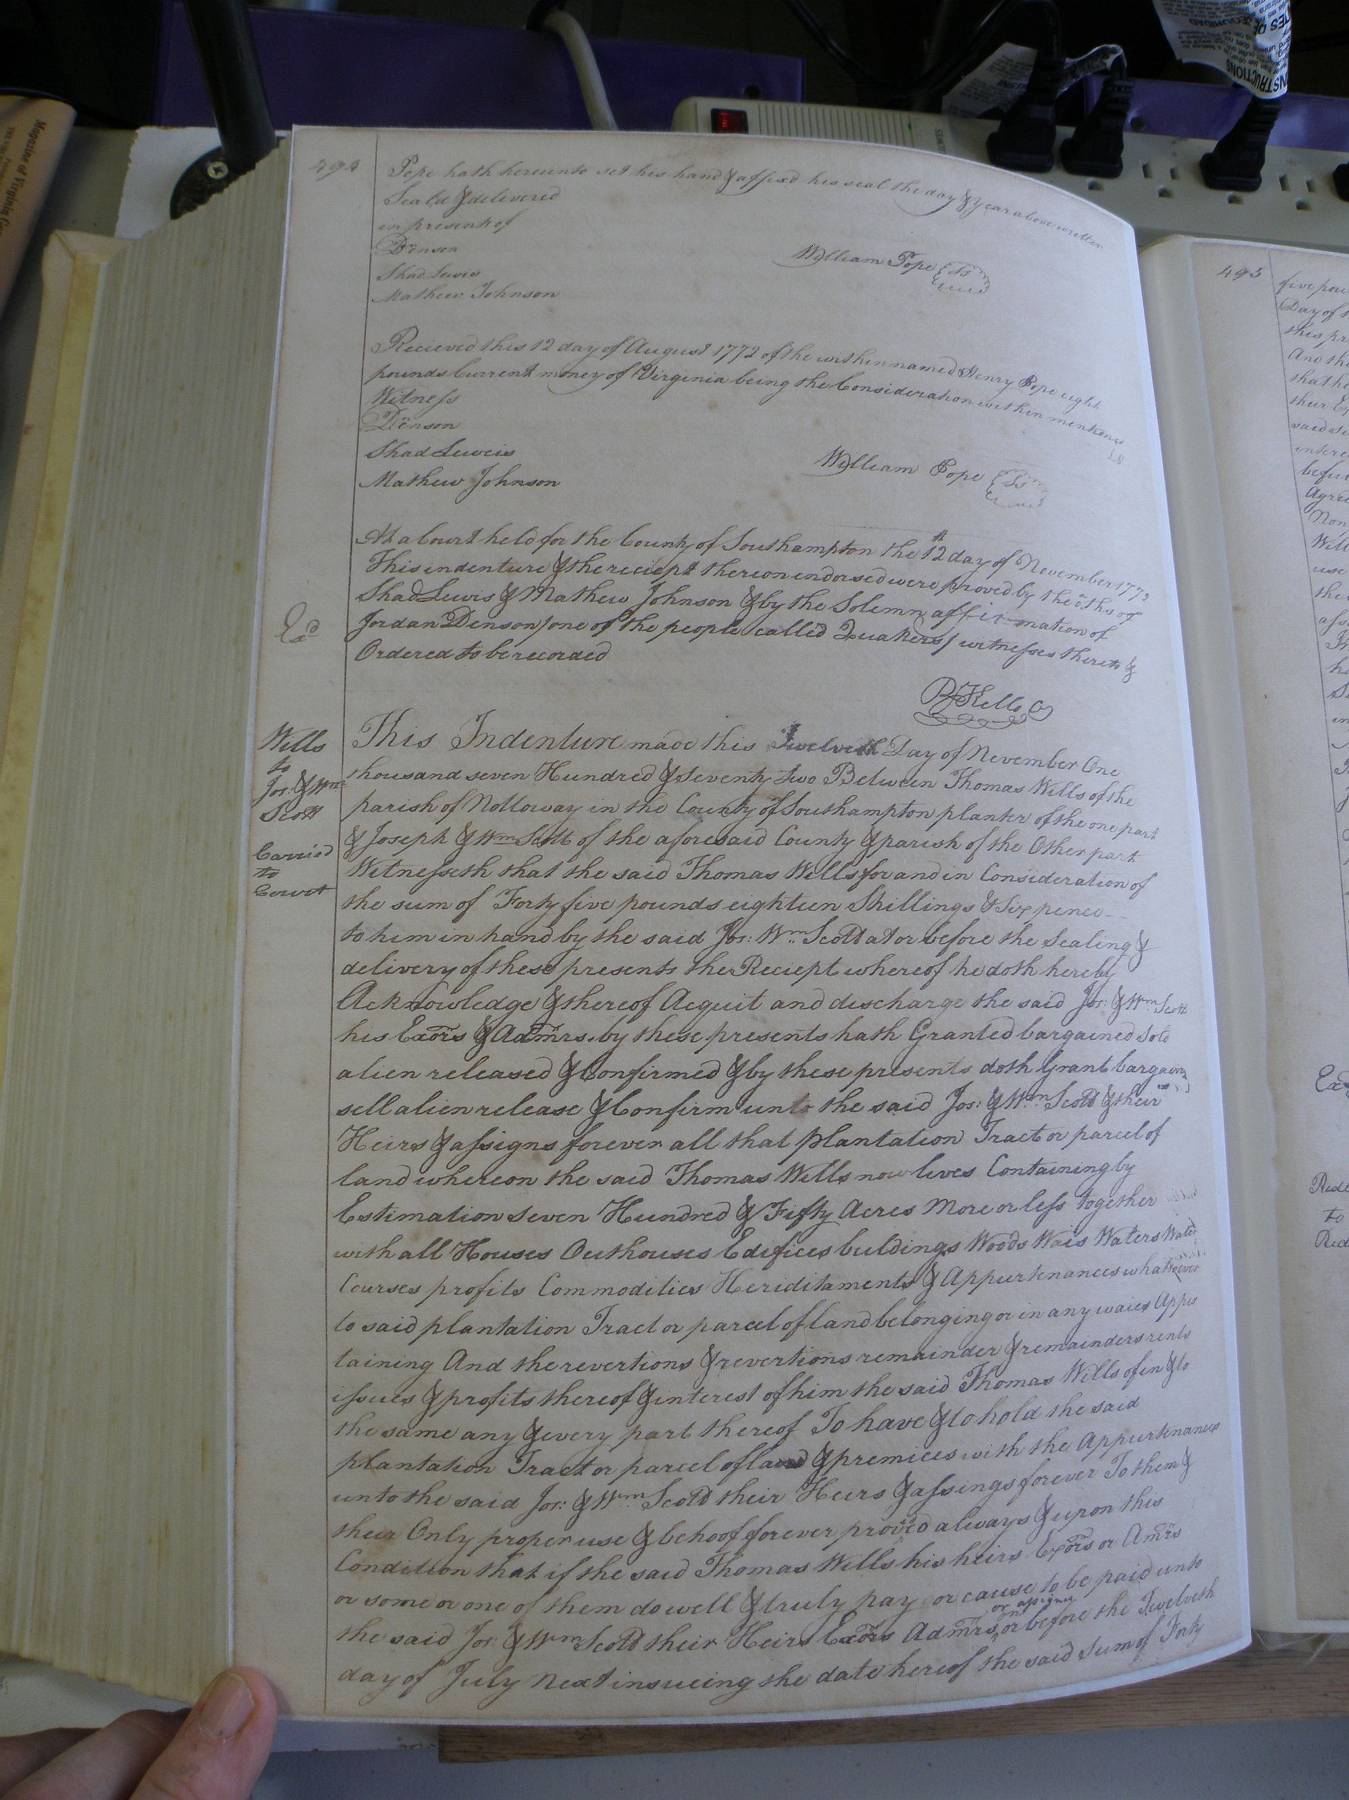 494
Pope hath hereunto set his hand & affixed his seal the day & year above written
Seald & delivered
in presents of
Denson
Shad Lewis
Mathew Johnson
William Pope
Recieved this 12 day of August 1772 of the within named Henry Pope eight
pounds Current money of Virginia being the Consideration within mentiond
Witness
Denson
Shad Lewis
Mathew Johnson
William Pope
At a Court held for the County of Southampton the 12th day of November 1772
This indenture & the reciept thereon endorsed were proved by the oths of
Shad Lewis & Mathew Johnson & by the Solemn affirmation of
Jordan Denson / one of the people called Quakers / witnesses thereto &
Ordered to be recorded
Exd
Wills
to
Jos: & Wm
Scott
Carried
to
Court
This Indenture made this Twelveth Day of November One
thousand seven Hundred & Seventy two Between Thomas Wills of the
parish of Nottoway in the County of Southampton planter of the one part
& Joseph & Wm Scott of the aforesaid County & parish of the Other part
Witnesseth that the said Thomas Wills for and in Consideration of
the sum of Forty five pounds eighteen Shillings & Six pence
to him in hand by the said Jos: Wm Scott at or before the Sealing &
delivery of these presents the Reciept whereof he doth hereby
Acknowledge & thereof Acquit and discharge the said Jos: & Wm Scott
his Exors & Admrs. by these presents hath Granted bargained Sold
alien released & Confirmed & by these presents doth Grant bargain
sell alien release & Confirm unto the said Jos: & Wm Scott & their
Heirs & assigns forever all that plantation Tract or parcel of
land whereon the said Thomas Wills now lives Containing by
Estimation seven Hundred & Fifty Acres More or less together
with all Houses Outhouses Edifices buldings Woods Wais Waters Water
Courses profits Commodities Hereditaments & Appurtenances whatsoever
to said plantation Tract or parcel of land belonging or in any waies Apper
taining And the revertions & revertions remainder & remainders rents
issues & profits thereof & interest of him the said Thomas Wills of in & to
the same any & every part thereof To have & to hold the said
plantation Tract or parcel of land & premices with the Appurtenances
unto the said Jos: & Wm Scott their Heirs & assings forever To them &
their Only proper use & behoof forever provid always & upon this
Condition that if the said Thomas Wills his heirs Exors or Amrs
or some or one of them do well & truly pay or cause to be paid unto
the said Jos: & Wm Scott their Heirs Exors Admrs or assigns on or before the Twelveth
day of July Next insueing the date hereof the said Sum of Forty
495